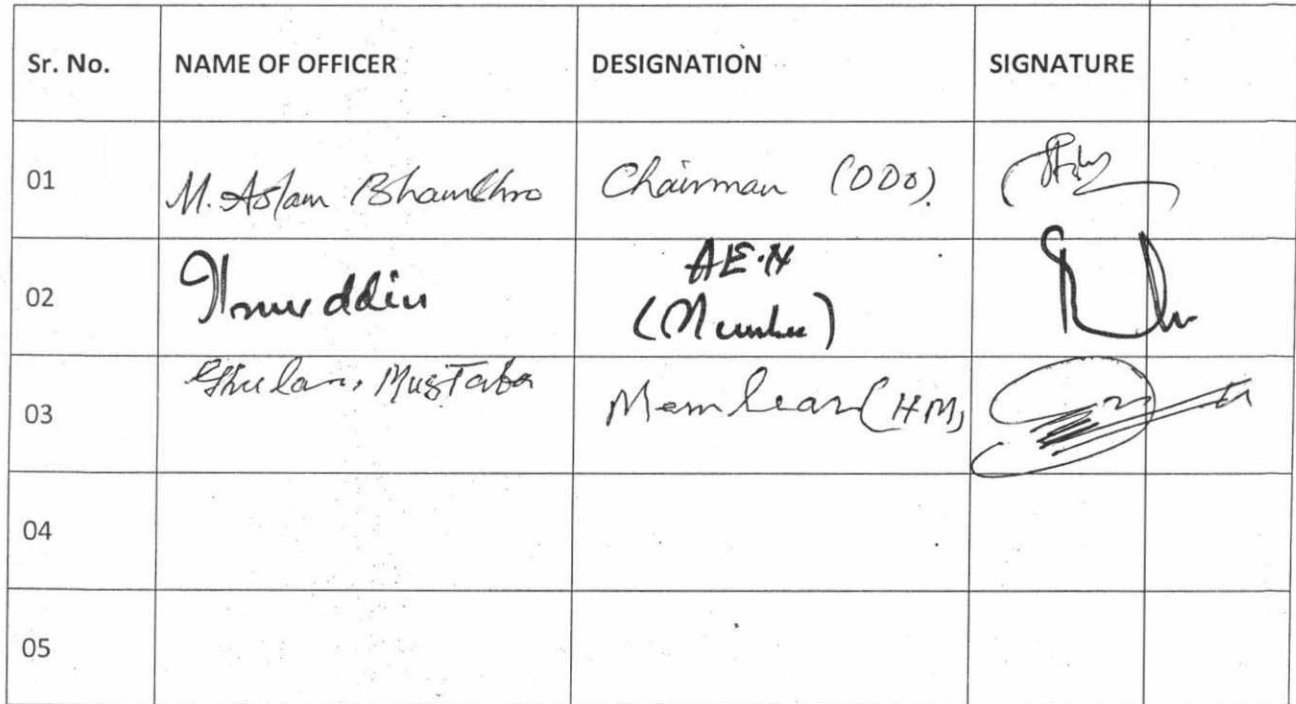 Sr. No. NAME OF OFFICER DESIGNATION SIGNATURE
01 M. Aslam Bhambhro Chairman (DDO).
02 AE.N
(Member)
03 Ghulam Mustafa Member (HM)
04
05